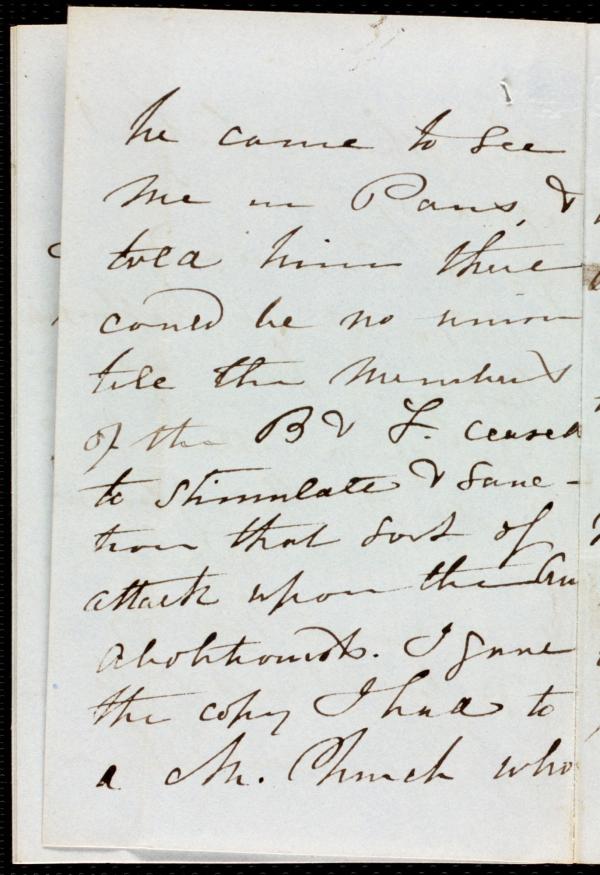 he came to see
me in Paris, &
told him there
could be no union
till the members
of the B & F. ceased
to stimulate & sanc-
tion that sort of
attack upon the Am
Abolitionists. I gave
the copy I had to
a Mr. Church who